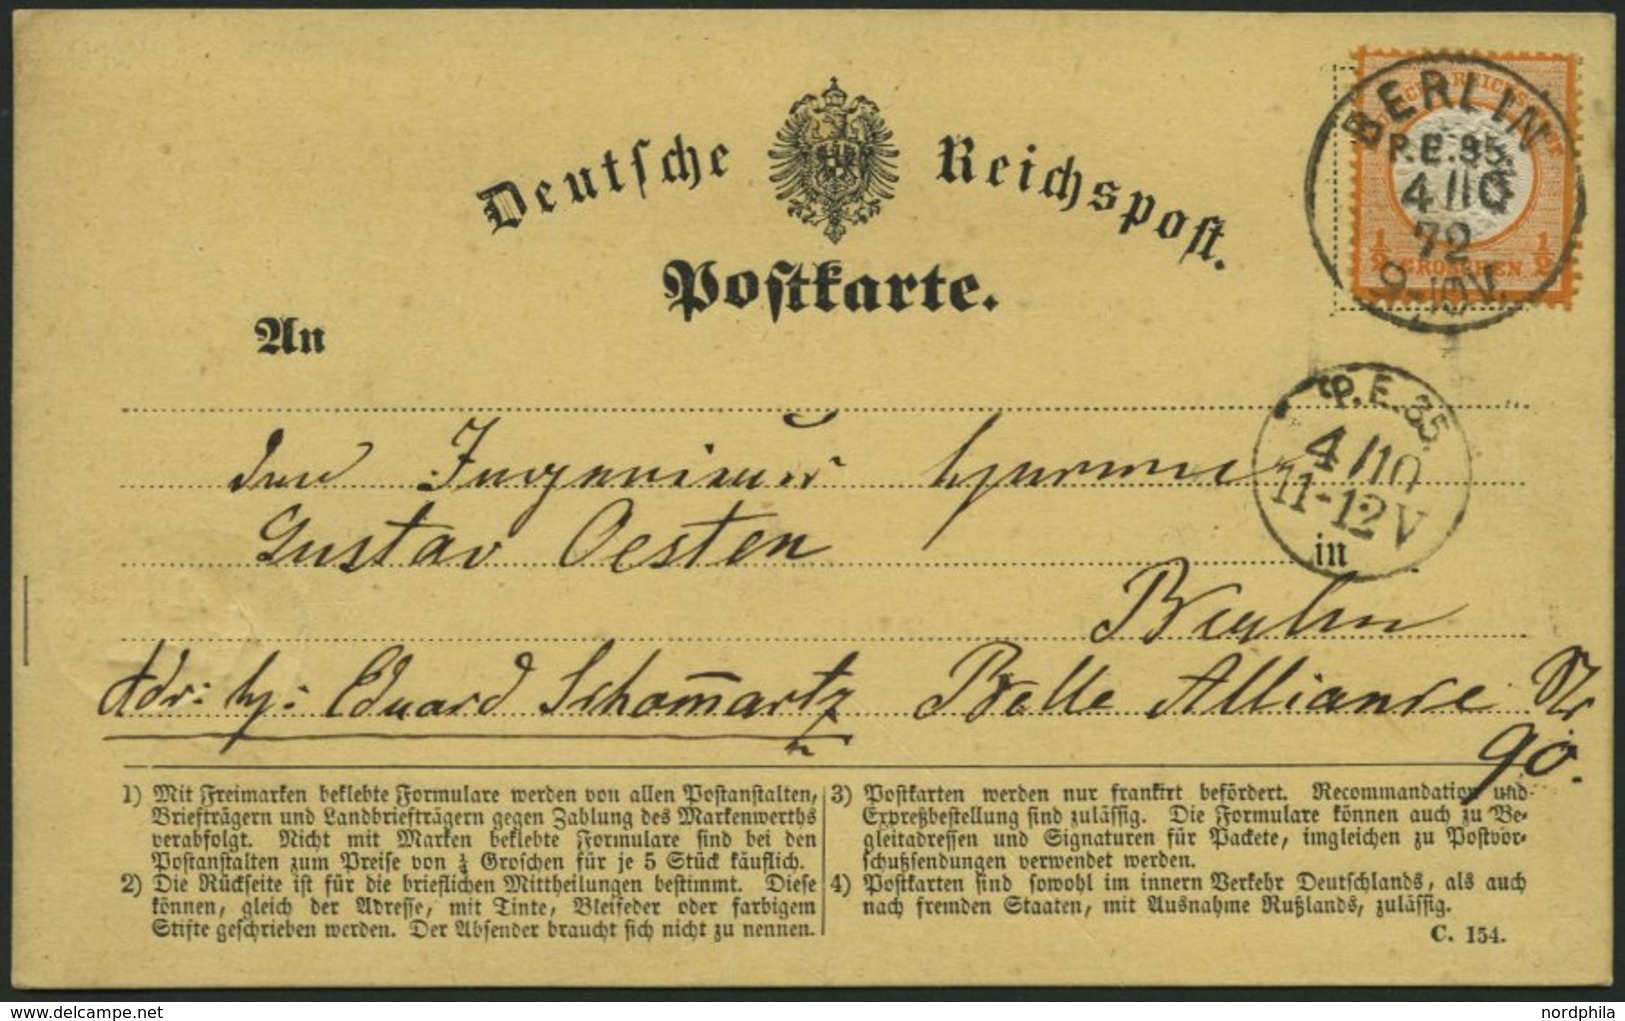 Deutsche Reichspost.
Postkarte.
DEUTSCHE REICHS-POST
1/2 GROSCHEN 1/2
BERLIN
P.E.35.
4/10
72
9-10V.
An
P.E.35
4/10
11-12V
den Ingenieur Herrn
Gustav Oesten
in
Berlin
Adr: H: Eduard Schom̄artz Belle Alliance Str
90.
1) Mit Freimarken beklebte Formulare werden von allen Postanstalten,
Briefträgern und Landbriefträgern gegen Zahlung des Markenwerths
verabfolgt. Nicht mit Marken beklebte Formulare sind bei den
Postanstalten zum Preise von ¼ Groschen für je 5 Stück käuflich.
2) Die Rückseite ist für die brieflichen Mittheilungen bestimmt. Diese
können, gleich der Adresse, mit Tinte, Bleifeder oder farbigem
Stifte geschrieben werden. Der Absender braucht sich nicht zu nennen.
3) Postkarten werden nur frankirt befördert. Recommandation und
Expreßbestellung sind zulässig. Die Formulare können auch zu Be-
gleitadressen und Signaturen für Packete, imgleichen zu Postvor-
schußsendungen verwendet werden.
4) Postkarten sind sowohl im innern Verkehr Deutschlands, als auch
nach fremden Staaten, mit Ausnahme Rußlands, zulässig.
C. 154.
nordphila